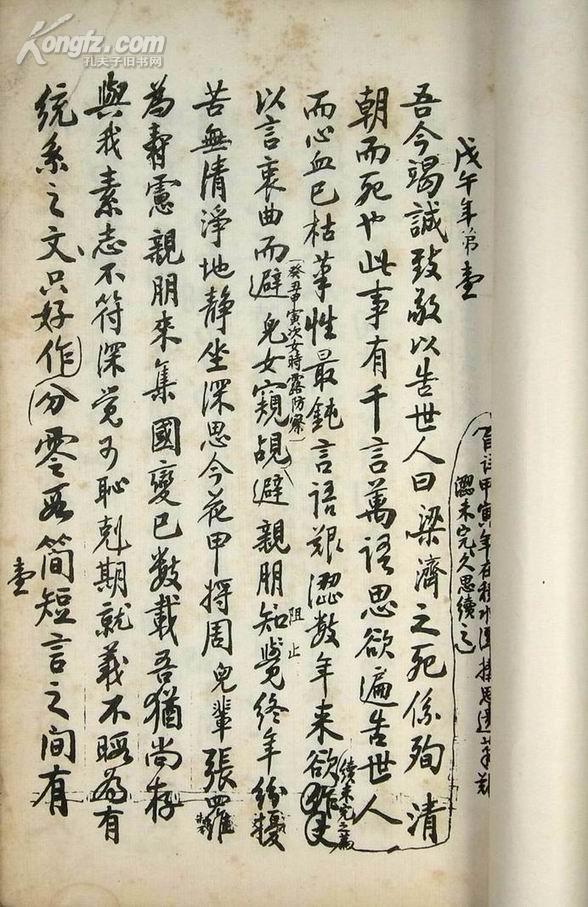 Kongfz.com
孔夫子旧书网
戊午年弟壹
吾今竭誠致敬以告世人曰梁濟之死係殉 清
朝而死也此事有千言萬語思欲遍告世人
而心血已枯筆性最鈍言語艱澀數年來欲
續未完之篇
以言衷曲而避兒女窺覘避親朋知覺終年紛擾
(癸丑甲寅次女時露防察)
阻止
苦無清淨地静坐深思今花甲将周兒輩張羅
為壽憲親朋來集國變已數載吾猶尚存
與我素志不符深覺可恥剋期就義不暇為有
統系之文只好作分零品简短言之间有
壹
甲寅年
未完久思續之